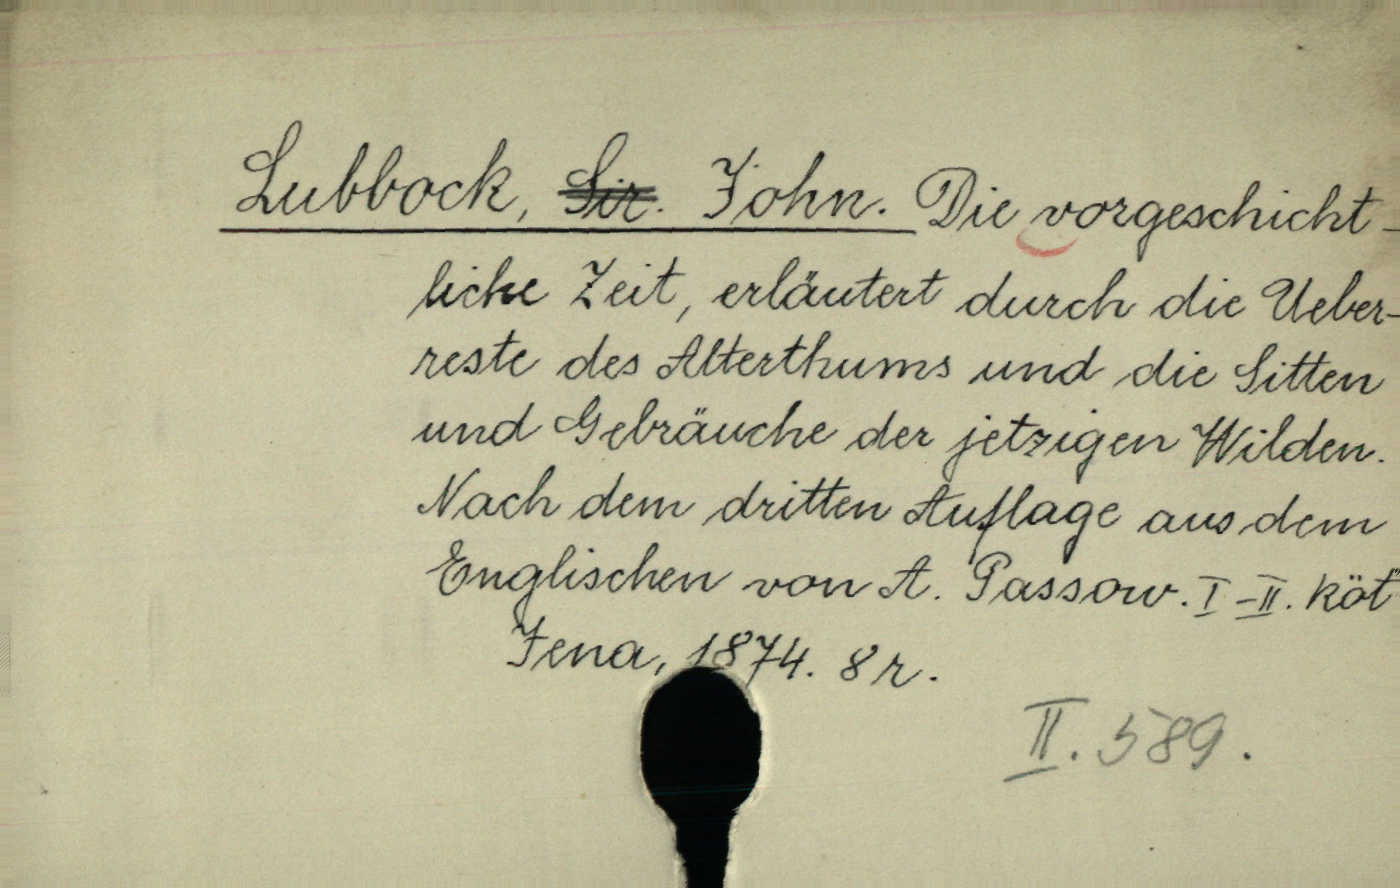 Lubbock, Sir. John. Die vorgeschicht-
liche Zeit, erläutert durch die Ueber-
reste des Alterthums und die Sitten
und Gebräuche der jetzigen Wilden.
Nach dem dritten Auflage aus dem
Englischen von A. Passow. I-II. köt
Jena, 1874. 8r.
II. 589.